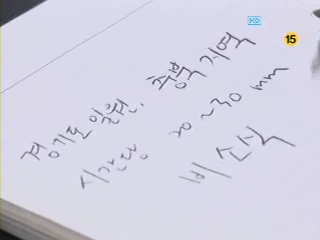 HD
15
경기도 일원, 충북 지역
시간당 20~30 mm
비 소식